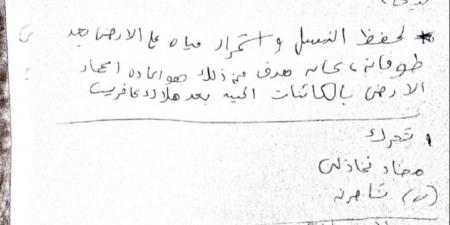 * لحفظ النسل واستمرار حياه على الارض بعد
طوفان، كانه هدف من ذلك هو اعاده اعمار
الارض بالكائنات الحيه بعد هلاك الكافرين
تحرك
مضاد
(ن)